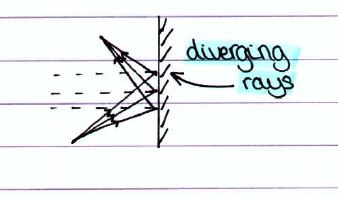 diverging
rays